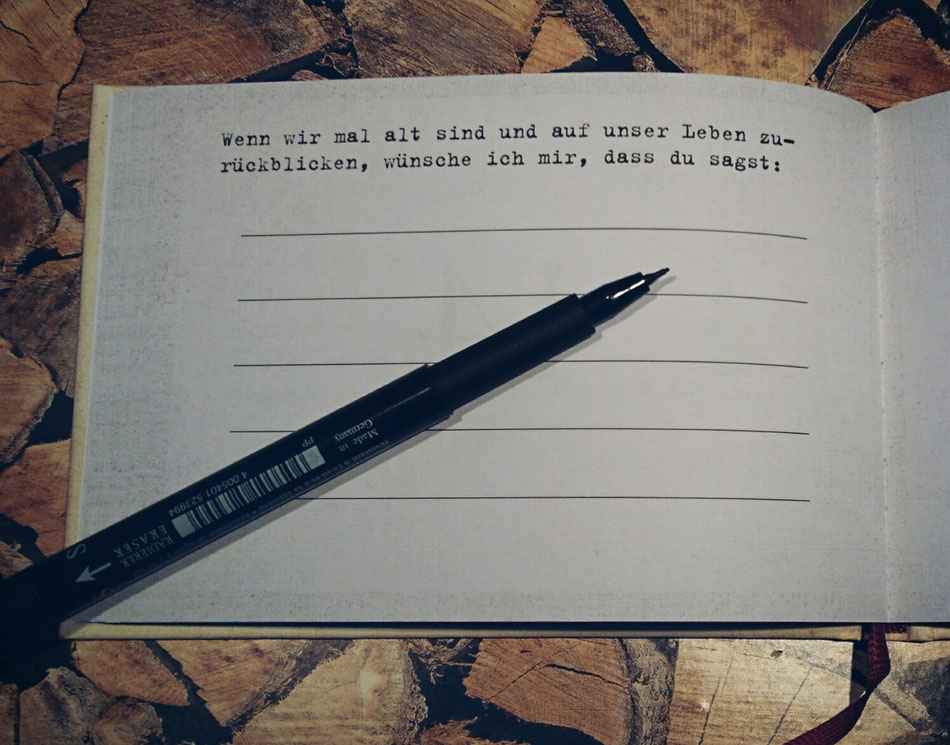 Wenn wir mal alt sind und auf unser Leben zu-
rückblicken, wünsche ich mir, dass du sagst:
Made in
Germany
PP
4 005401 523994
RADIERER
ERASER
S